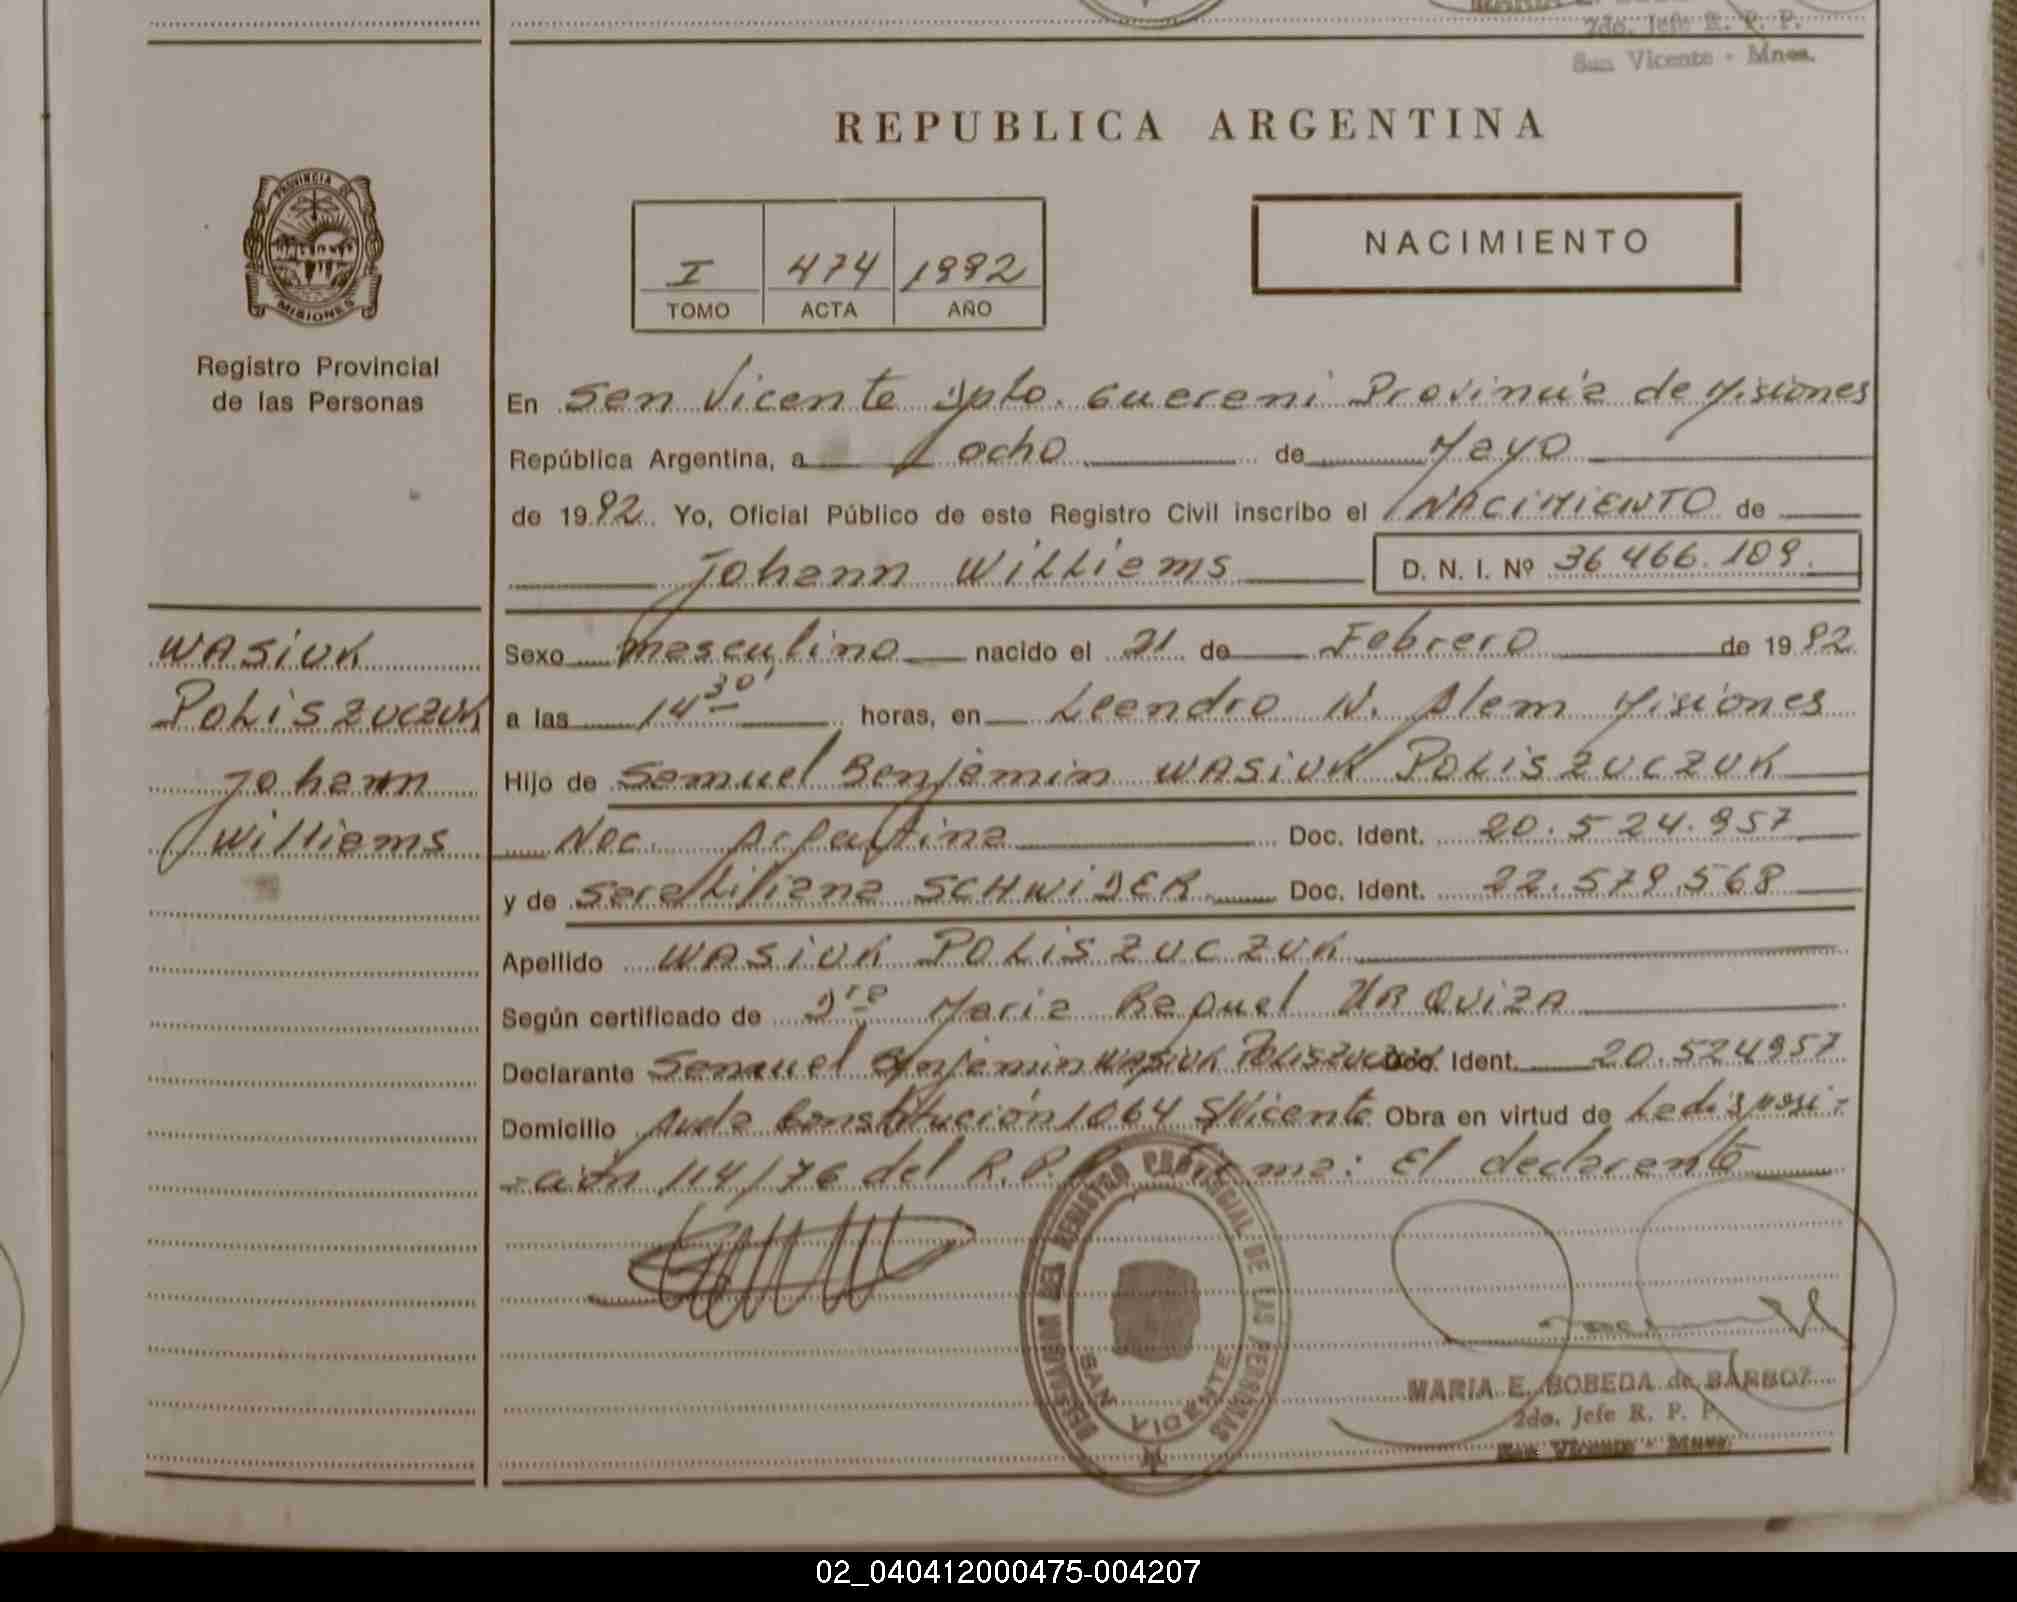 2do. Jefe R. P. P.
San Vicente - Mnes.
REPUBLICA ARGENTINA
PROVINCIA DE
MISIONES
Registro Provincial
de las Personas
I 474 1992
TOMO ACTA AÑO
NACIMIENTO
En San Vicente Dpto. Guarani Provincia de Misiones
República Argentina, a ocho de Mayo
de 1992. Yo, Oficial Público de este Registro Civil inscribo el NACIMIENTO de
Johann Williams D. N. I. Nº 36466.109.
WASIUK
POLISZUCZUK
Johann
Williams
Sexo masculino nacido el 21 de Febrero de 1992
a las 14 30' horas, en Leandro N. Alem Misiones
Hijo de Samuel Benjamin WASIUK POLISZUCZUK
Nac. Argentina Doc. Ident. 20.524.957
y de Sara Liliana SCHWIDER Doc. Ident. 22.579.568
Apellido WASIUK POLISZUCZUK
Según certificado de Dra Maria Raquel URQUIZA
Declarante Samuel Benjamin WASIUK POLISZUCZUK Doc. Ident. 20.524957
Domicilio Avda Constitución 1064 S/Vicente Obra en virtud de La disposi-
-ción 114/76 del R.P.P. Firma: El declarante
REGISTRO PROVINCIAL DE LAS PERSONAS
SAN VICENTE
MARIA E. BOBEDA de BARBOZ
2do. Jefe R. P. P.
San Vicente - Mnes.
02_040412000475-004207